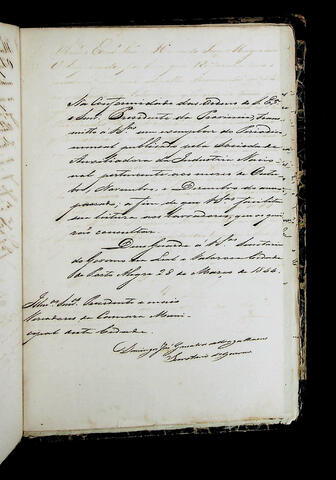 Na Conformidade das Ordens de S. Exª
o Snr. Presidente da Provincia, trans-
mitto a Vªs um exemplar do
mensal publicado pela Sociedade
Auxiliadora da Industria Nacio-
nal pertencente aos mezes de Outu-
bro, Novembro, e Dezembro do anno
passado; a fim de que Vªs facilite
sua leitura aos Lavradores, que o quei-
rão consultar.
Deos Guarde a Vªs Secretaria
do Governo em Leal e Valorosa Cidade
de Porto Alegre 28 de Março de 1844.
Illmos Snres Presidente e mais
Vereadores da Camara Muni-
cipal desta Cidade.
Domingos José Gonçalves de Magalhaens
Secretario do Governo